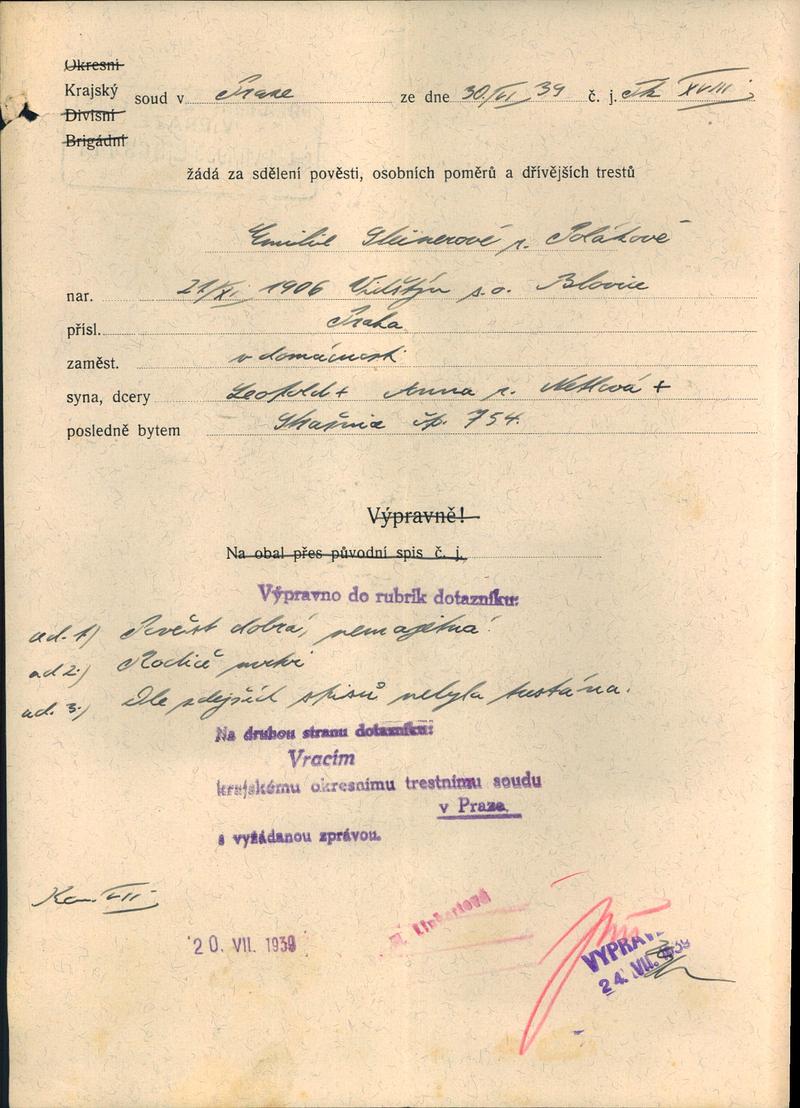 Okresní
Krajský
Divisní
Brigádní
soud v Praze ze dne 30/VI 39 č. j. Tk XVIII
žádá za sdělení pověsti, osobních poměrů a dřívějších trestů
Emilie Steinerové r. Polákové
nar. 21/XI 1906 s. o. Blovice
přísl. Praha
zaměst. v domácnosti
syna, dcery Leopold + Anna r. +
posledně bytem čp. 754.
Výpravně!
Na obal přes původní spis č. j.
Výpravno do rubrik dotazníku:
ad. 1) Pověst dobrá, nemajetná.
ad 2.) Rodiče mrtvi
ad. 3.) Dle zdejších spisů nebyla trestána.
Na druhou stranu dotazníku:
Vracím
krajskému okresnímu trestnímu soudu
v Praze,
s vyžádanou zprávou.
VII.
20. VII. 1939
Linhartová
VYPRAV.
24. VII. 1939